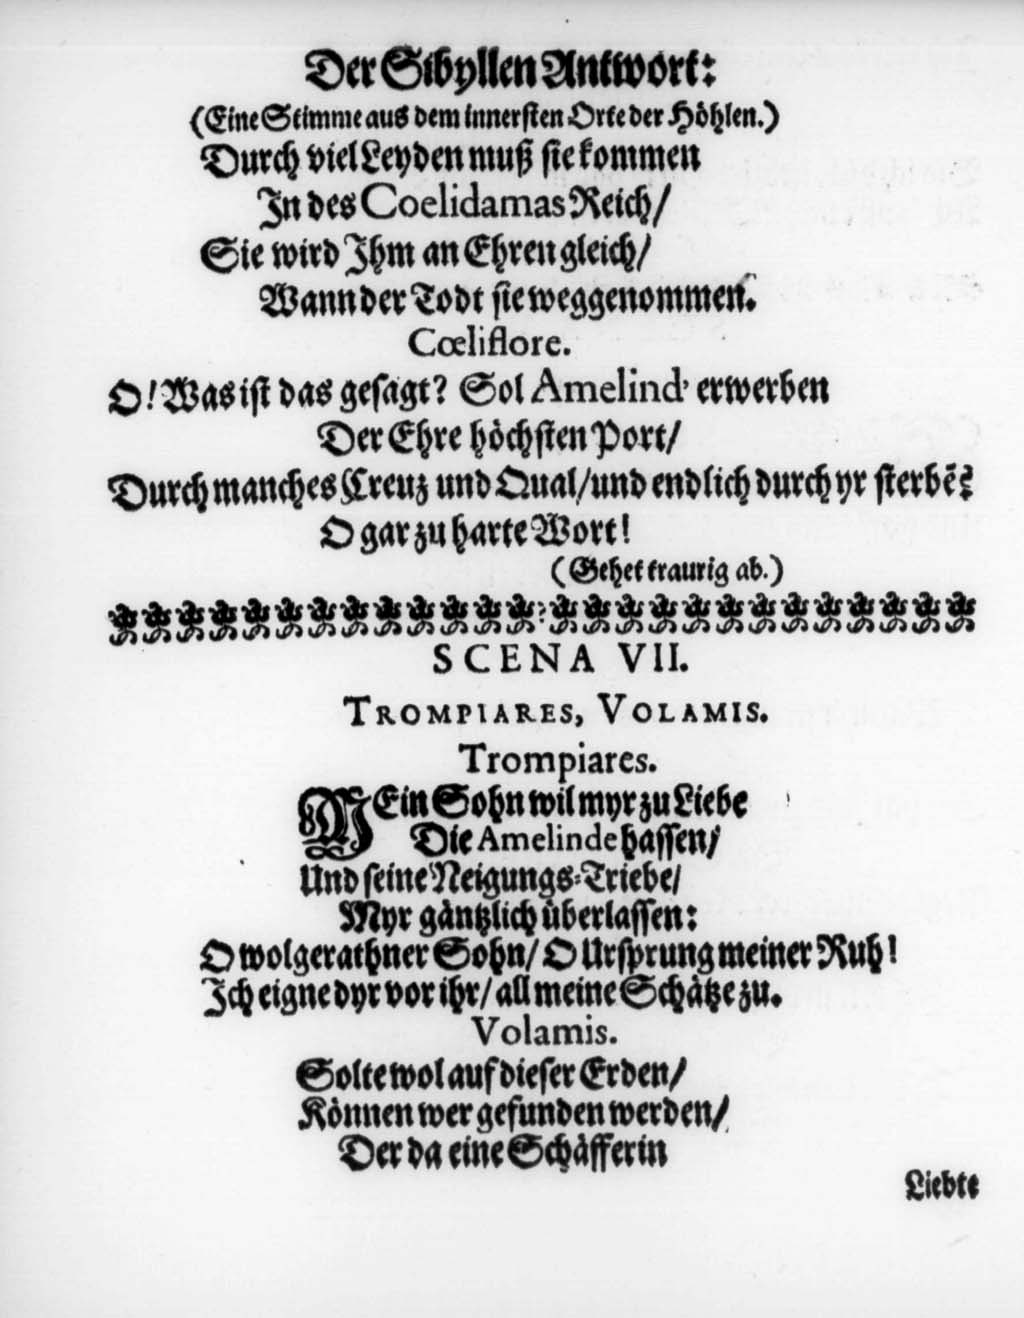 Der Sibyllen Antwort:
(Eine Stimme aus dem innersten Orte der Höhlen.)
Durch viel Leyden muß sie kommen
In des Coelidamas Reich/
Sie wird Ihm an Ehren gleich/
Wann der Todt sie weggenommen.
Cœliflore.
O! Was ist das gesagt? Sol Amelind' erwerben
Der Ehre höchsten Port/
Durch manches Creuz und Qual/und endlich durch yr sterbē?
O gar zu harte Wort!
(Gehet traurig ab.)
SCENA VII.
TROMPIARES, VOLAMIS.
Trompiares.
MEin Sohn wil myr zu Liebe
Die Amelinde hassen/
Und seine Neigungs-Triebe/
Myr gäntzlich überlassen:
O wolgerathner Sohn/ O Ursprung meiner Ruh!
Ich eigne dyr vor ihr/ all meine Schätze zu.
Volamis.
Solte wol auf dieser Erden/
Können wer gefunden werden/
Der da eine Schäfferin
Liebte